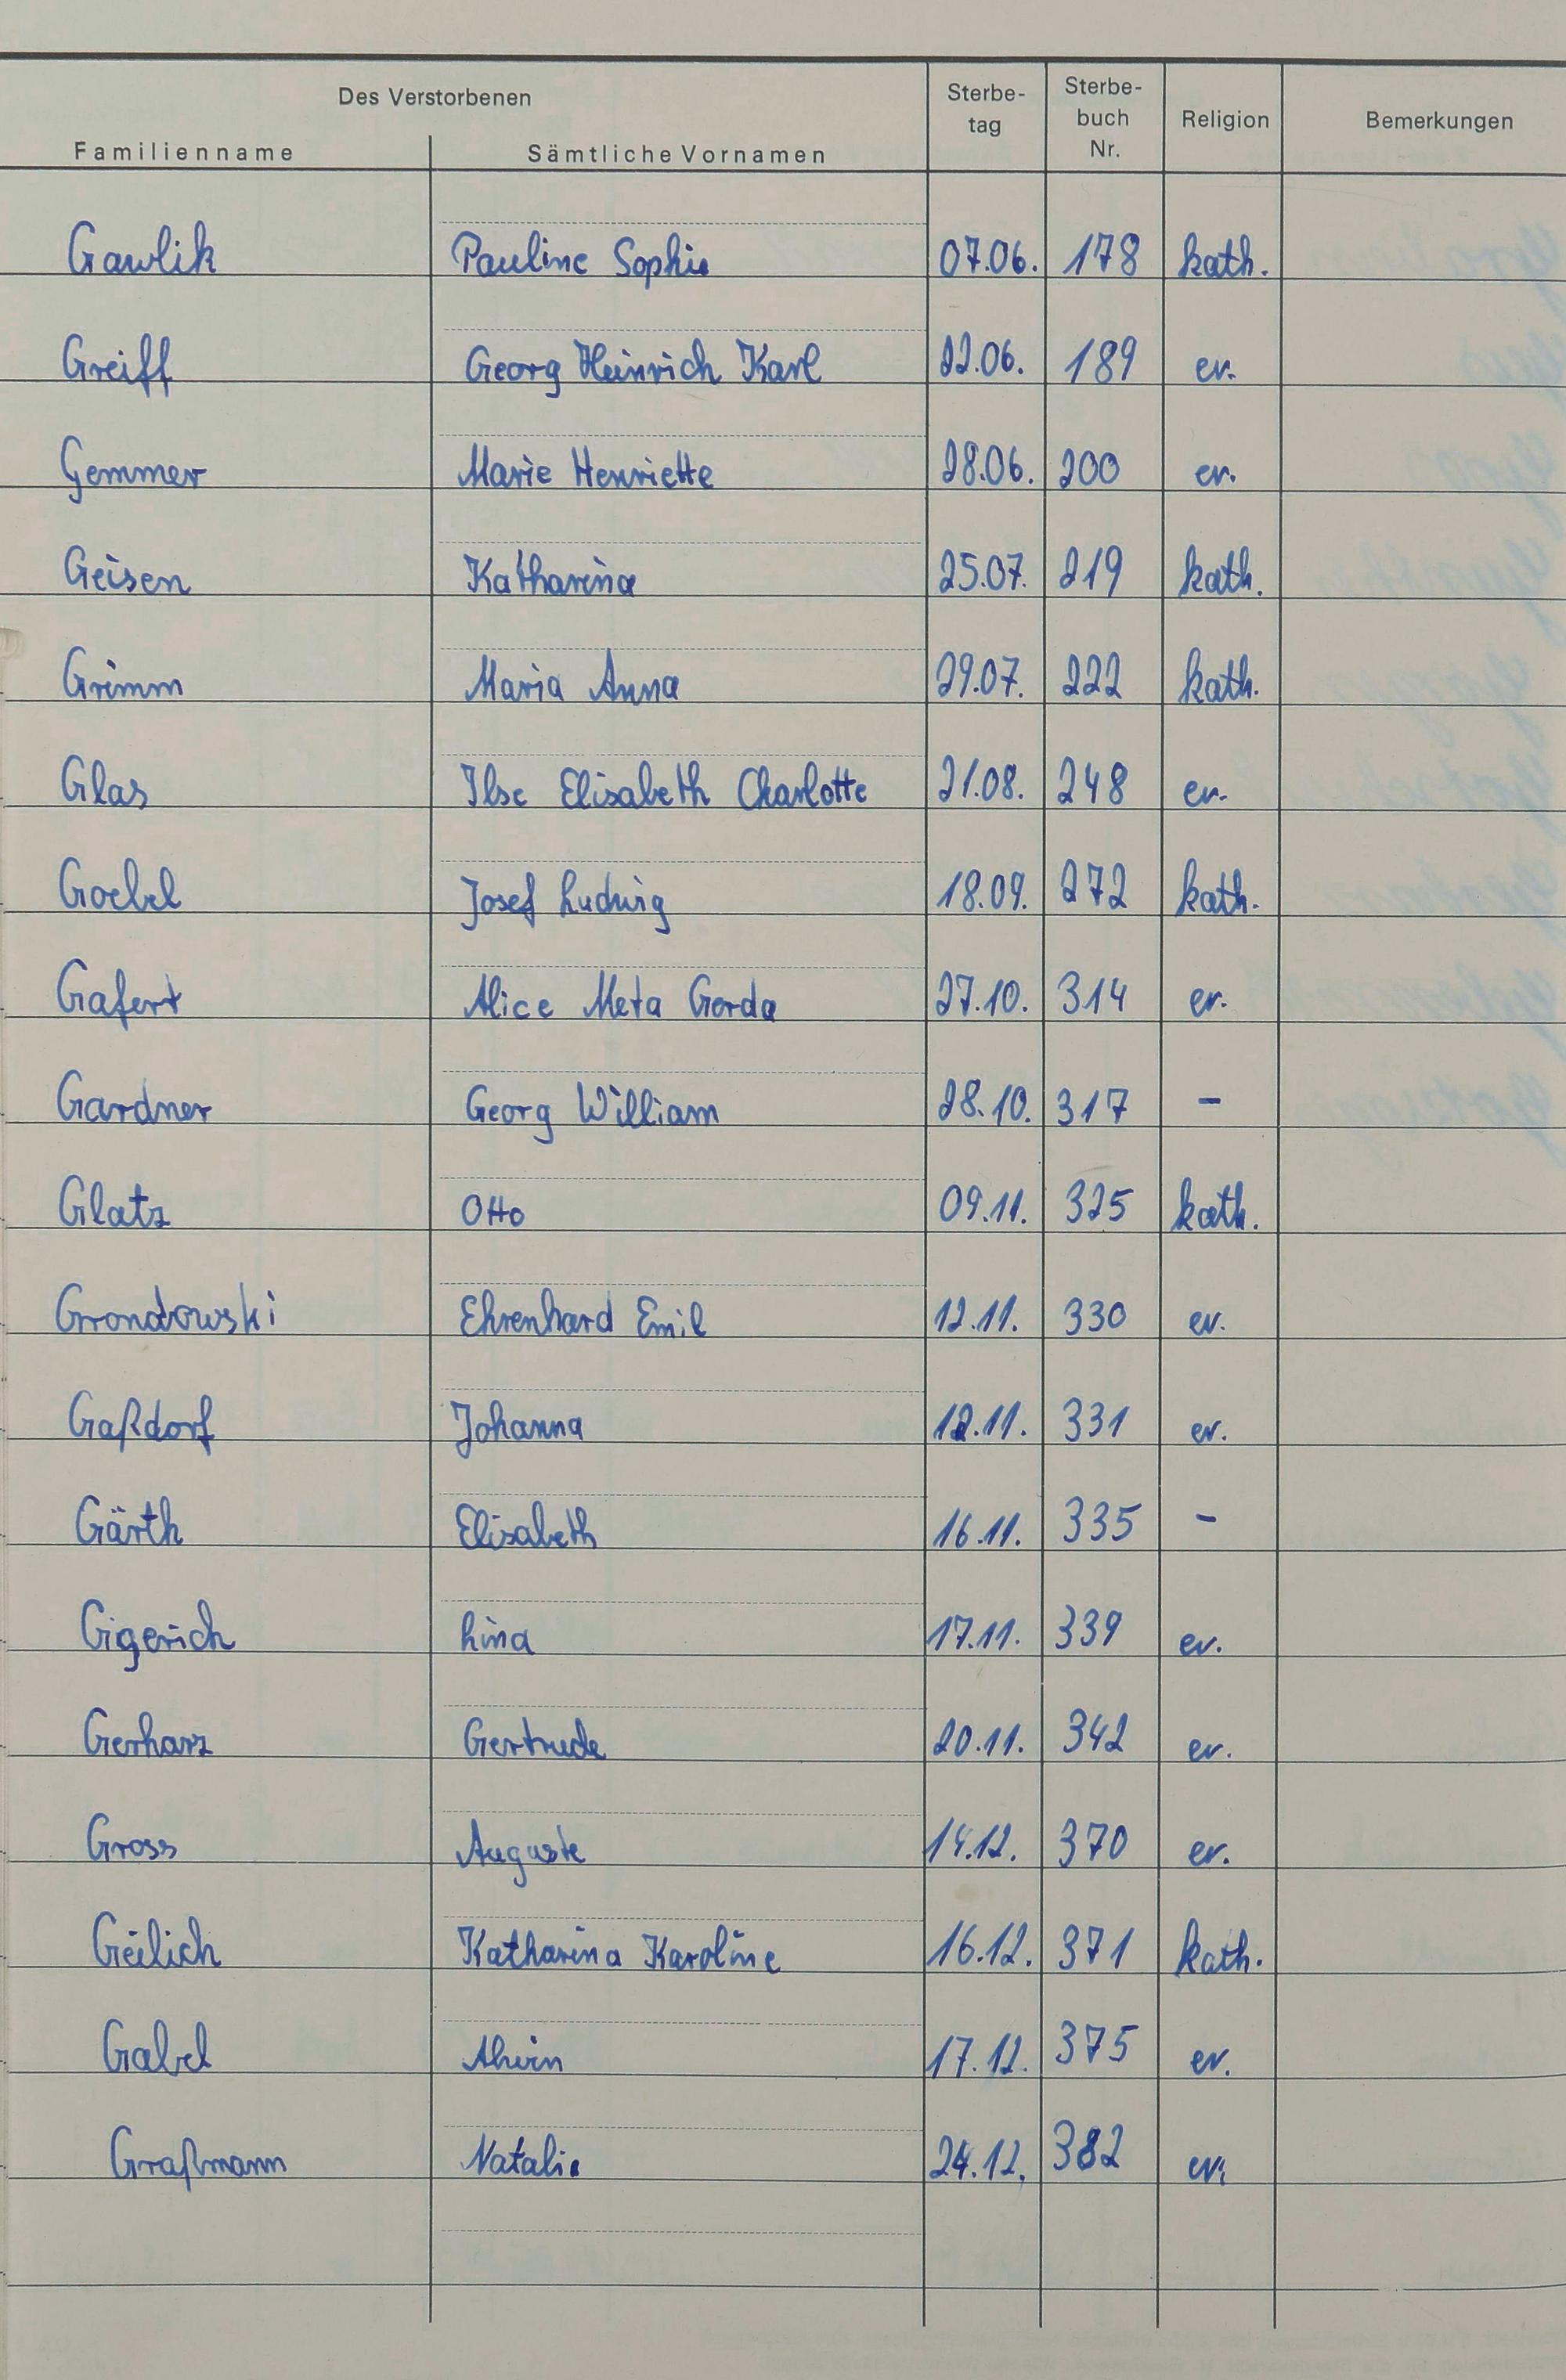 Des Verstorbenen
Familienname Sämtliche Vornamen Sterbe-tag Sterbe-buch Nr. Religion Bemerkungen
Gawlik Pauline Sophie 07.06. 178 kath.
Greiff Georg Heinrich Karl 22.06. 189 ev.
Gemmer Marie Henriette 28.06. 200 ev.
Geisen Katharina 25.07. 219 kath.
Grimm Maria Anna 29.07. 222 kath.
Glas Ilse Elisabeth Charlotte 21.08. 248 ev.
Goebel Josef Ludwig 18.09. 272 kath.
Gafert Alice Meta Gerda 27.10. 314 ev.
Gardner Georg William 28.10. 317 -
Glatz Otto 09.11. 325 kath.
Grondowski Ehrenhard Emil 12.11. 330 ev.
Gaßdorf Johanna 12.11. 331 ev.
Gärth Elisabeth 16.11. 335 -
Gigerich Lina 17.11. 339 ev.
Gerharz Gertrude 20.11. 342 ev.
Gross Auguste 14.12. 370 ev.
Geilich Katharina Karoline 16.12. 371 kath.
Gabel Alwin 17.12. 375 ev.
Graßmann Natalie 24.12. 382 ev.